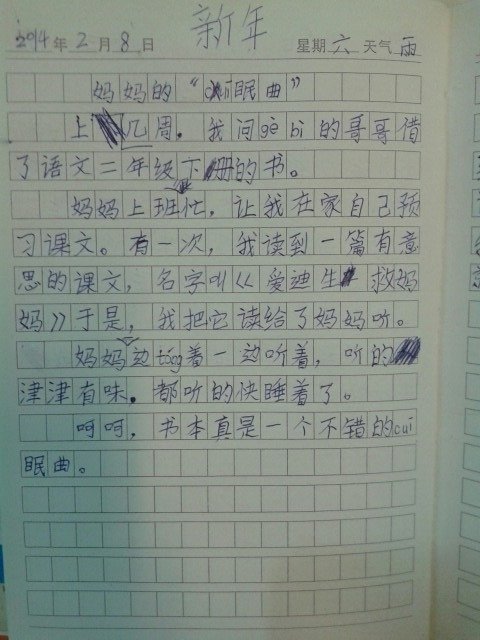 新年
2014年2月8日 星期六天气雨
妈妈的“cuī眠曲”
上几周。我问gé bì的哥哥借
了语文二年级下册的书。
妈妈上班忙，让我在家自己预
习课文。有一次，我读到一篇有意
思的课文，名字叫《爱迪生救妈
妈》于是，我把它读给了妈妈听。
妈妈边tǎng着一边听着，听的
津津有味。都听的快睡着了。
呵呵，书本真是一个不错的cuī
眠曲。